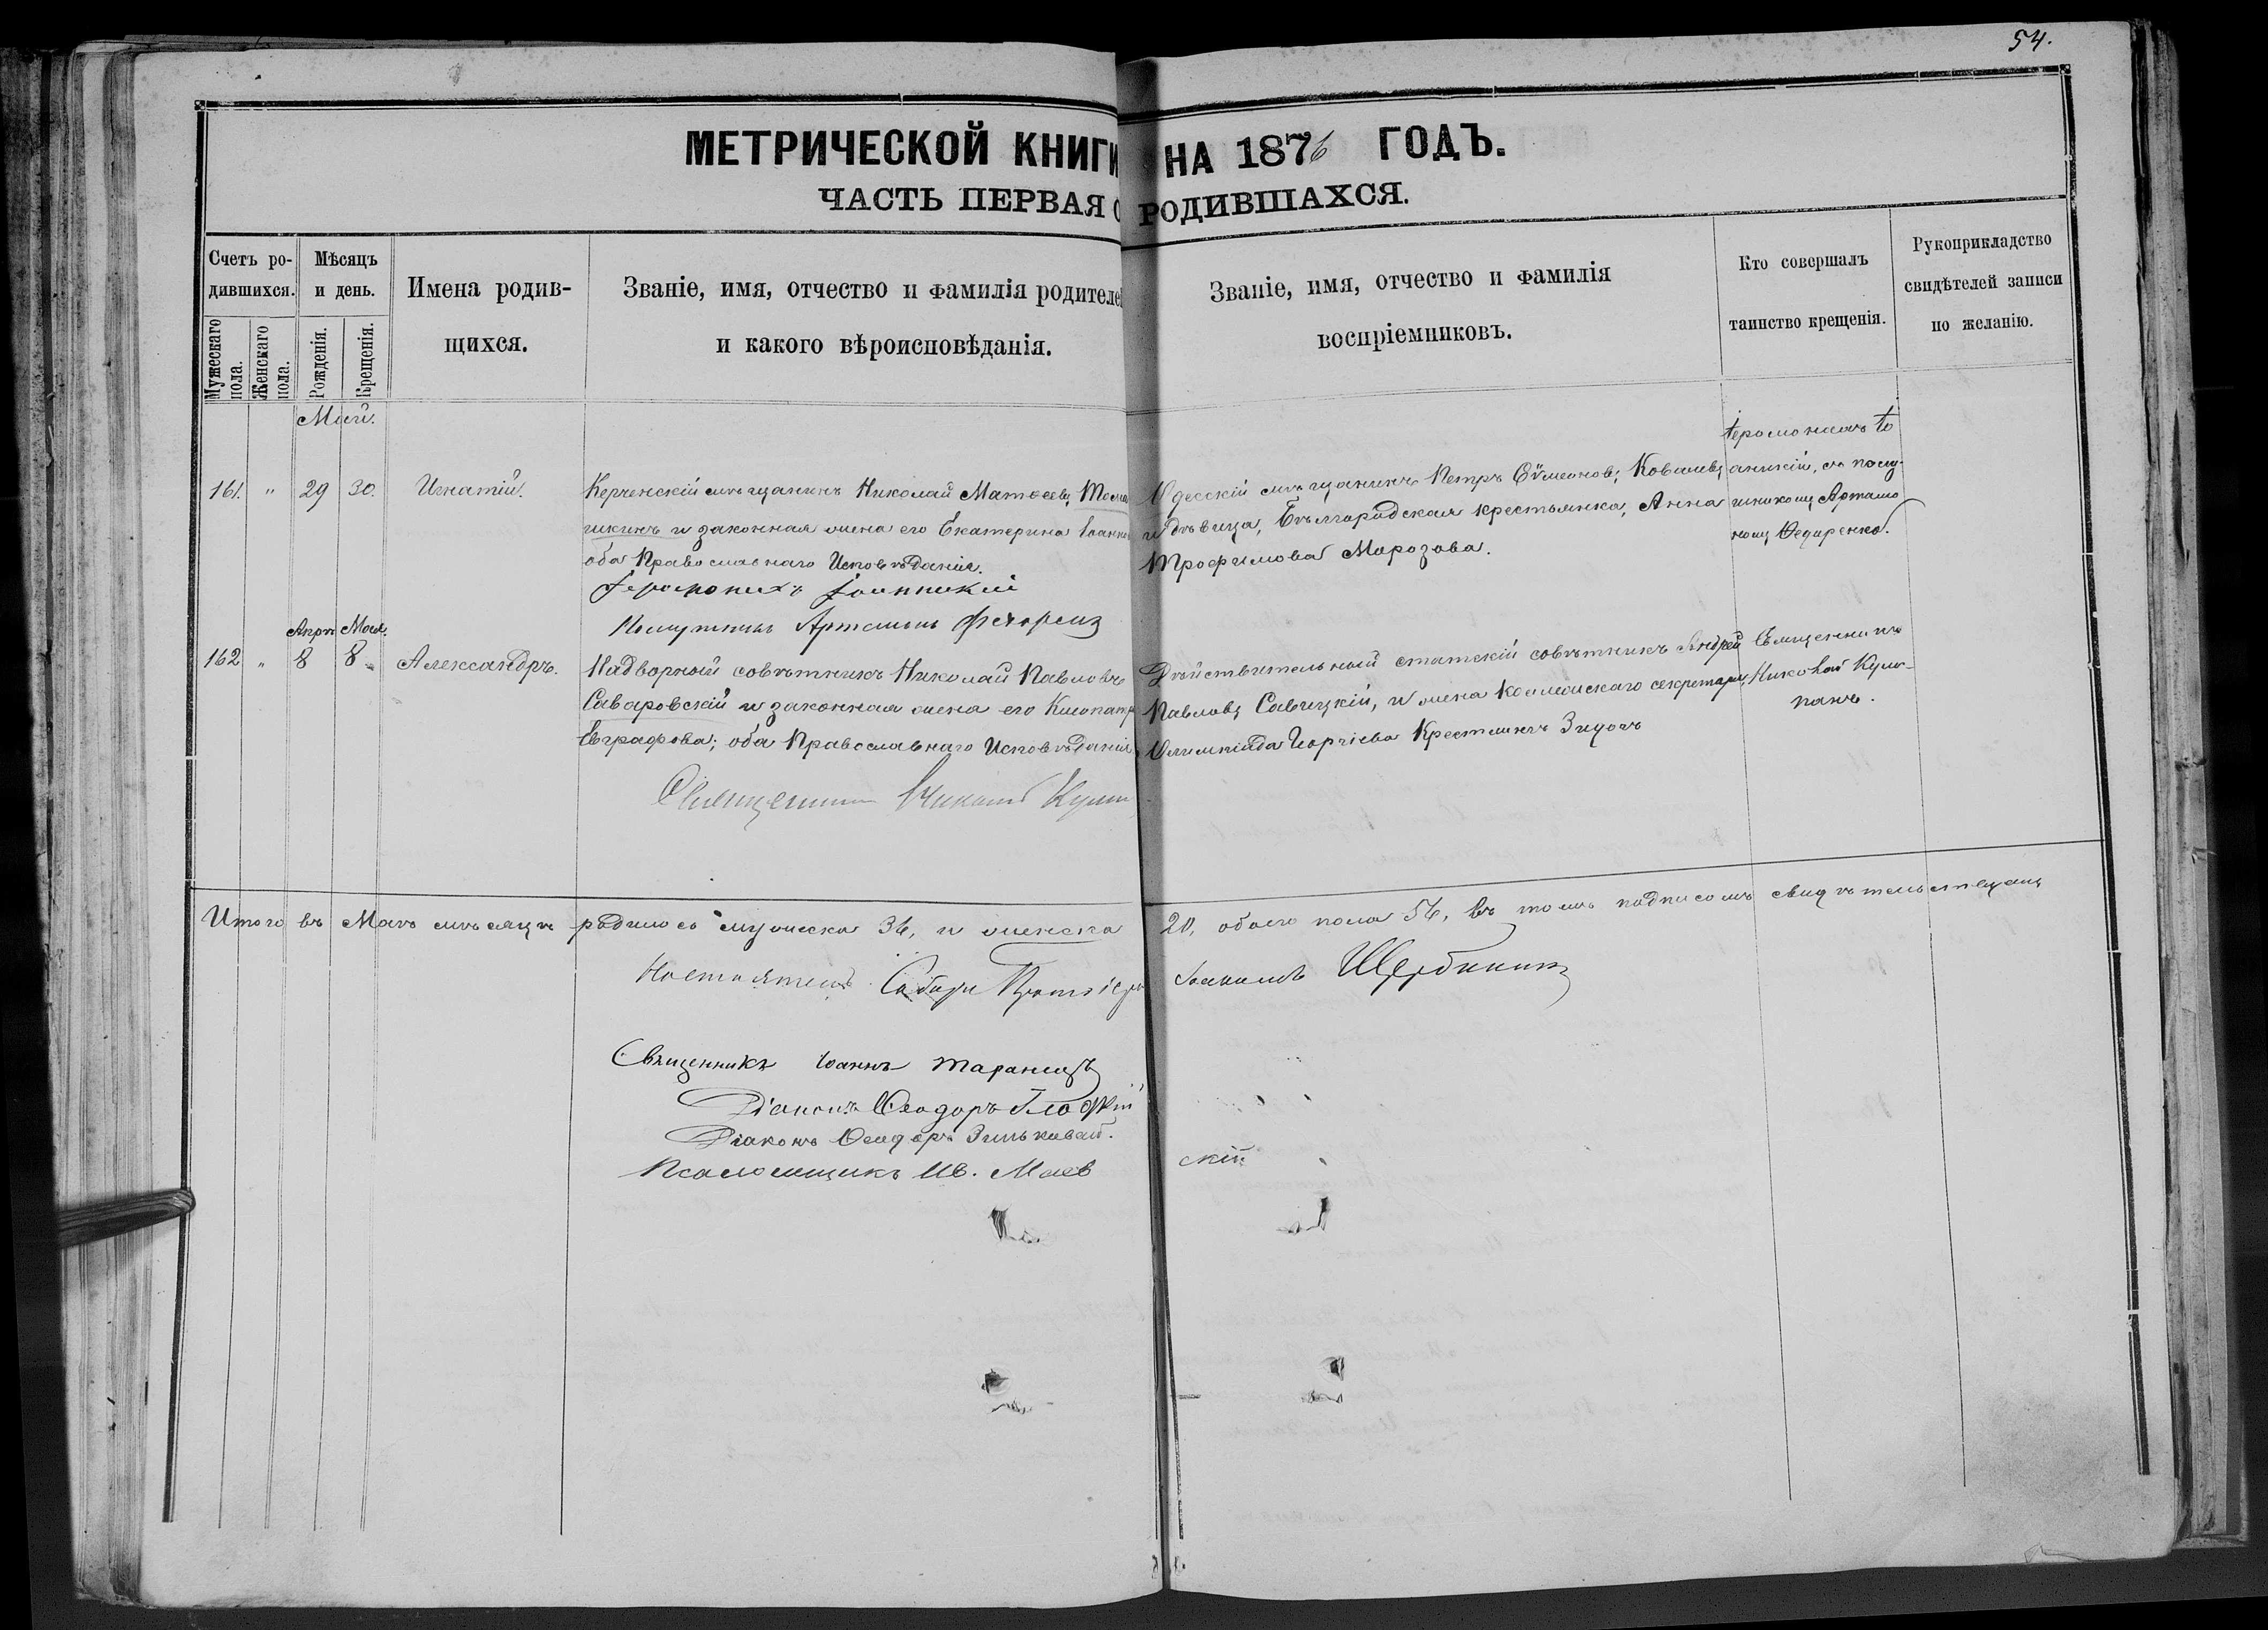 54.
МЕТРИЧЕСКОЙ КНИГИ НА 1876 ГОДЪ.
ЧАСТЬ ПЕРВАЯ О РОДИВШАХСЯ.
Счетъ родившихся.
Мужескаго пола.
Женскаго пола.
Мѣсяцъ и день.
Рожденія.
Крещенія.
Имена родившихся.
Званіе, имя, отчество и фамилія родителей
и какого вѣроисповѣданія.
Званіе, имя, отчество и фамилія
воспріемниковъ.
Кто совершалъ
таинство крещенія.
Рукоприкладство
свидѣтелей записи
по желанію.
Май.
161. " 29 30. Игнатій.
Керченскій мѣщанинъ Николай Матѳеевъ
и законная жена его Екатерина Іоанно
оба Православнаго Исповѣданія.
Іеромонахъ Іоанникій
Послушникъ Артамонъ
Одесскій мѣщанинъ Петръ Сѵмеоновъ Ковалевъ
и дѣвица, Бѣлгородская крестьянка, Анна
Трофимова Морозова.
Іеромонахъ Іо
аникій, съ послу
шникомъ Артамо
номъ Ѳедоренко.
Апрѣ Мая.
162 " 8 8 Александръ.
Надворный совѣтникъ Николай Павловъ
Саваровскій и законная жена его Клеопатр
Евграфова; оба Православнаго Исповѣданія
Священникъ Николай
Дѣйствительный статскій совѣтникъ Андрей
Павловъ Савицкій, и жена Коллежскаго секретаря,
Олимпіада Георгіева
Священникъ
Николай
Итого въ Маѣ мѣсяцѣ родилось мужеска 36, и женска 20, обоего пола 56, въ томъ подписомъ свидѣтельствуемъ
Настоятель Собора Протоіерей Щербининъ
Священникъ Іоаннъ
Діаконъ Ѳеодоръ
Діаконъ Ѳеодоръ Зиньковскій
Псаломщикъ Ив. Маев
скій